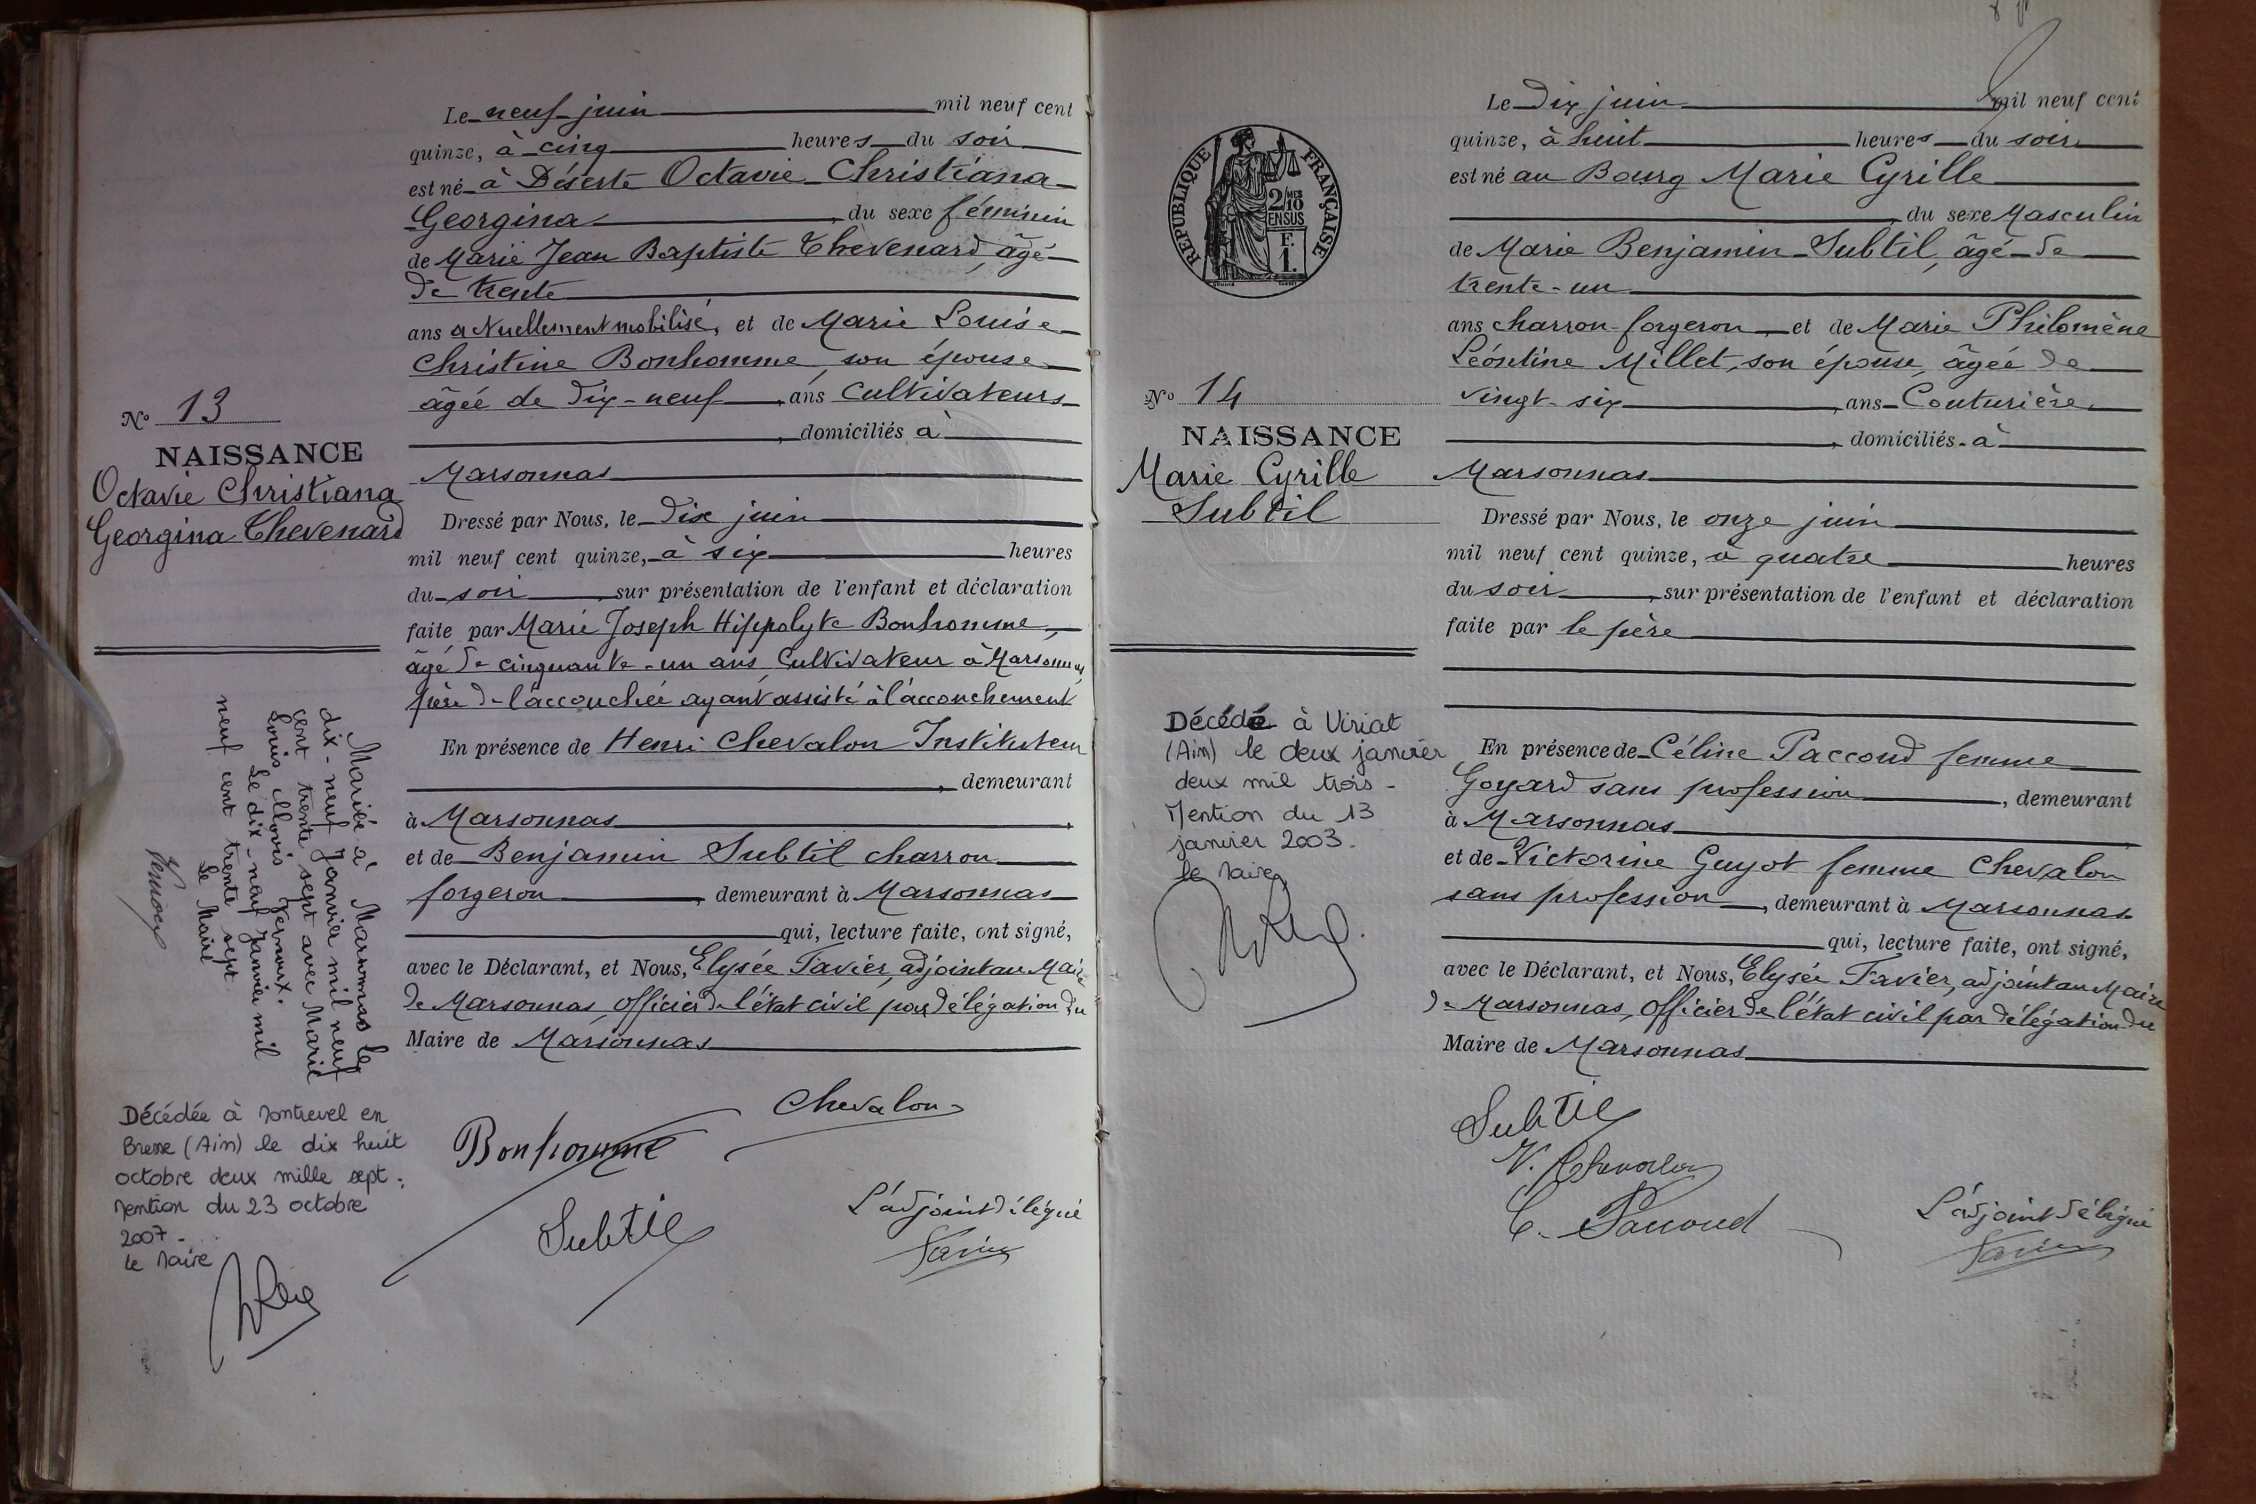 N° 13
NAISSANCE
Octavie Christiana
Georgina Thevenard
Mariée à Marsonnas le
dix-neuf Janvier mil neuf
cent trente sept avec Marie
Louis Clovis
Le dix-neuf Janvier mil
neuf cent trente sept
Le Maire
Décédée à Montrevel en
Bresse (Ain) le dix huit
octobre deux mille sept.
Mention du 23 octobre
2007 -
Le Maire
Le neuf juin mil neuf cent
quinze, à cinq heures du soir
est né à Déserte Octavie Christiana
Georgina, du sexe féminin
de Marie Jean Baptiste Thevenard, âgé
de trente
ans actuellement mobilisé, et de Marie Louise
Christine Bonhomme, son épouse
âgée de dix-neuf, ans cultivateurs
, domiciliés à
Marsonnas
Dressé par Nous, le dix juin
mil neuf cent quinze, à six heures
du soir, sur présentation de l'enfant et déclaration
faite par Marie Joseph Hippolyte Bonhomme,
âgé de cinquante-un ans, cultivateur à Marsonnas
père de l'accouchée ayant assisté à l'accouchement
En présence de Henri Chevalon Instituteur
, demeurant
à Marsonnas,
et de Benjamin Subtil charron
forgeron, demeurant à Marsonnas
qui, lecture faite, ont signé,
avec le Déclarant, et Nous, Elysée Favier, adjoint au Maire
de Marsonnas, officier de l'état civil par délégation du
Maire de Marsonnas
Chevalon
Bonhomme
Subtil
L'adjoint délégué
Favier
RÉPUBLIQUE FRANÇAISE
2/10
MES
EN SUS
F.
1.
N° 14
NAISSANCE
Marie Cyrille
Subtil
Décédé à Viriat
(Ain) le deux janvier
deux mil trois -
Mention du 13
janvier 2003.
Le Maire
Le dix juin mil neuf cent
quinze, à huit heures du soir
est né au Bourg Marie Cyrille
du sexe Masculin
de Marie Benjamin Subtil, âgé de
trente-un
ans charron-forgeron, et de Marie Philomène
Léontine Millet, son épouse, âgée de
vingt-six, ans Couturière
, domiciliés à
Marsonnas
Dressé par Nous, le onze juin
mil neuf cent quinze, à quatre heures
du soir, sur présentation de l'enfant et déclaration
faite par le père
En présence de Céline Paccoud femme
Goyard sans profession, demeurant
à Marsonnas
et de Victorine Guyot femme Chevalon
sans profession, demeurant à Marsonnas
qui, lecture faite, ont signé,
avec le Déclarant, et Nous, Elysée Favier, adjoint au Maire
de Marsonnas, officier de l'état civil par délégation du
Maire de Marsonnas
Subtil
V. Chevalon
C. Paccoud
L'adjoint délégué
Favier